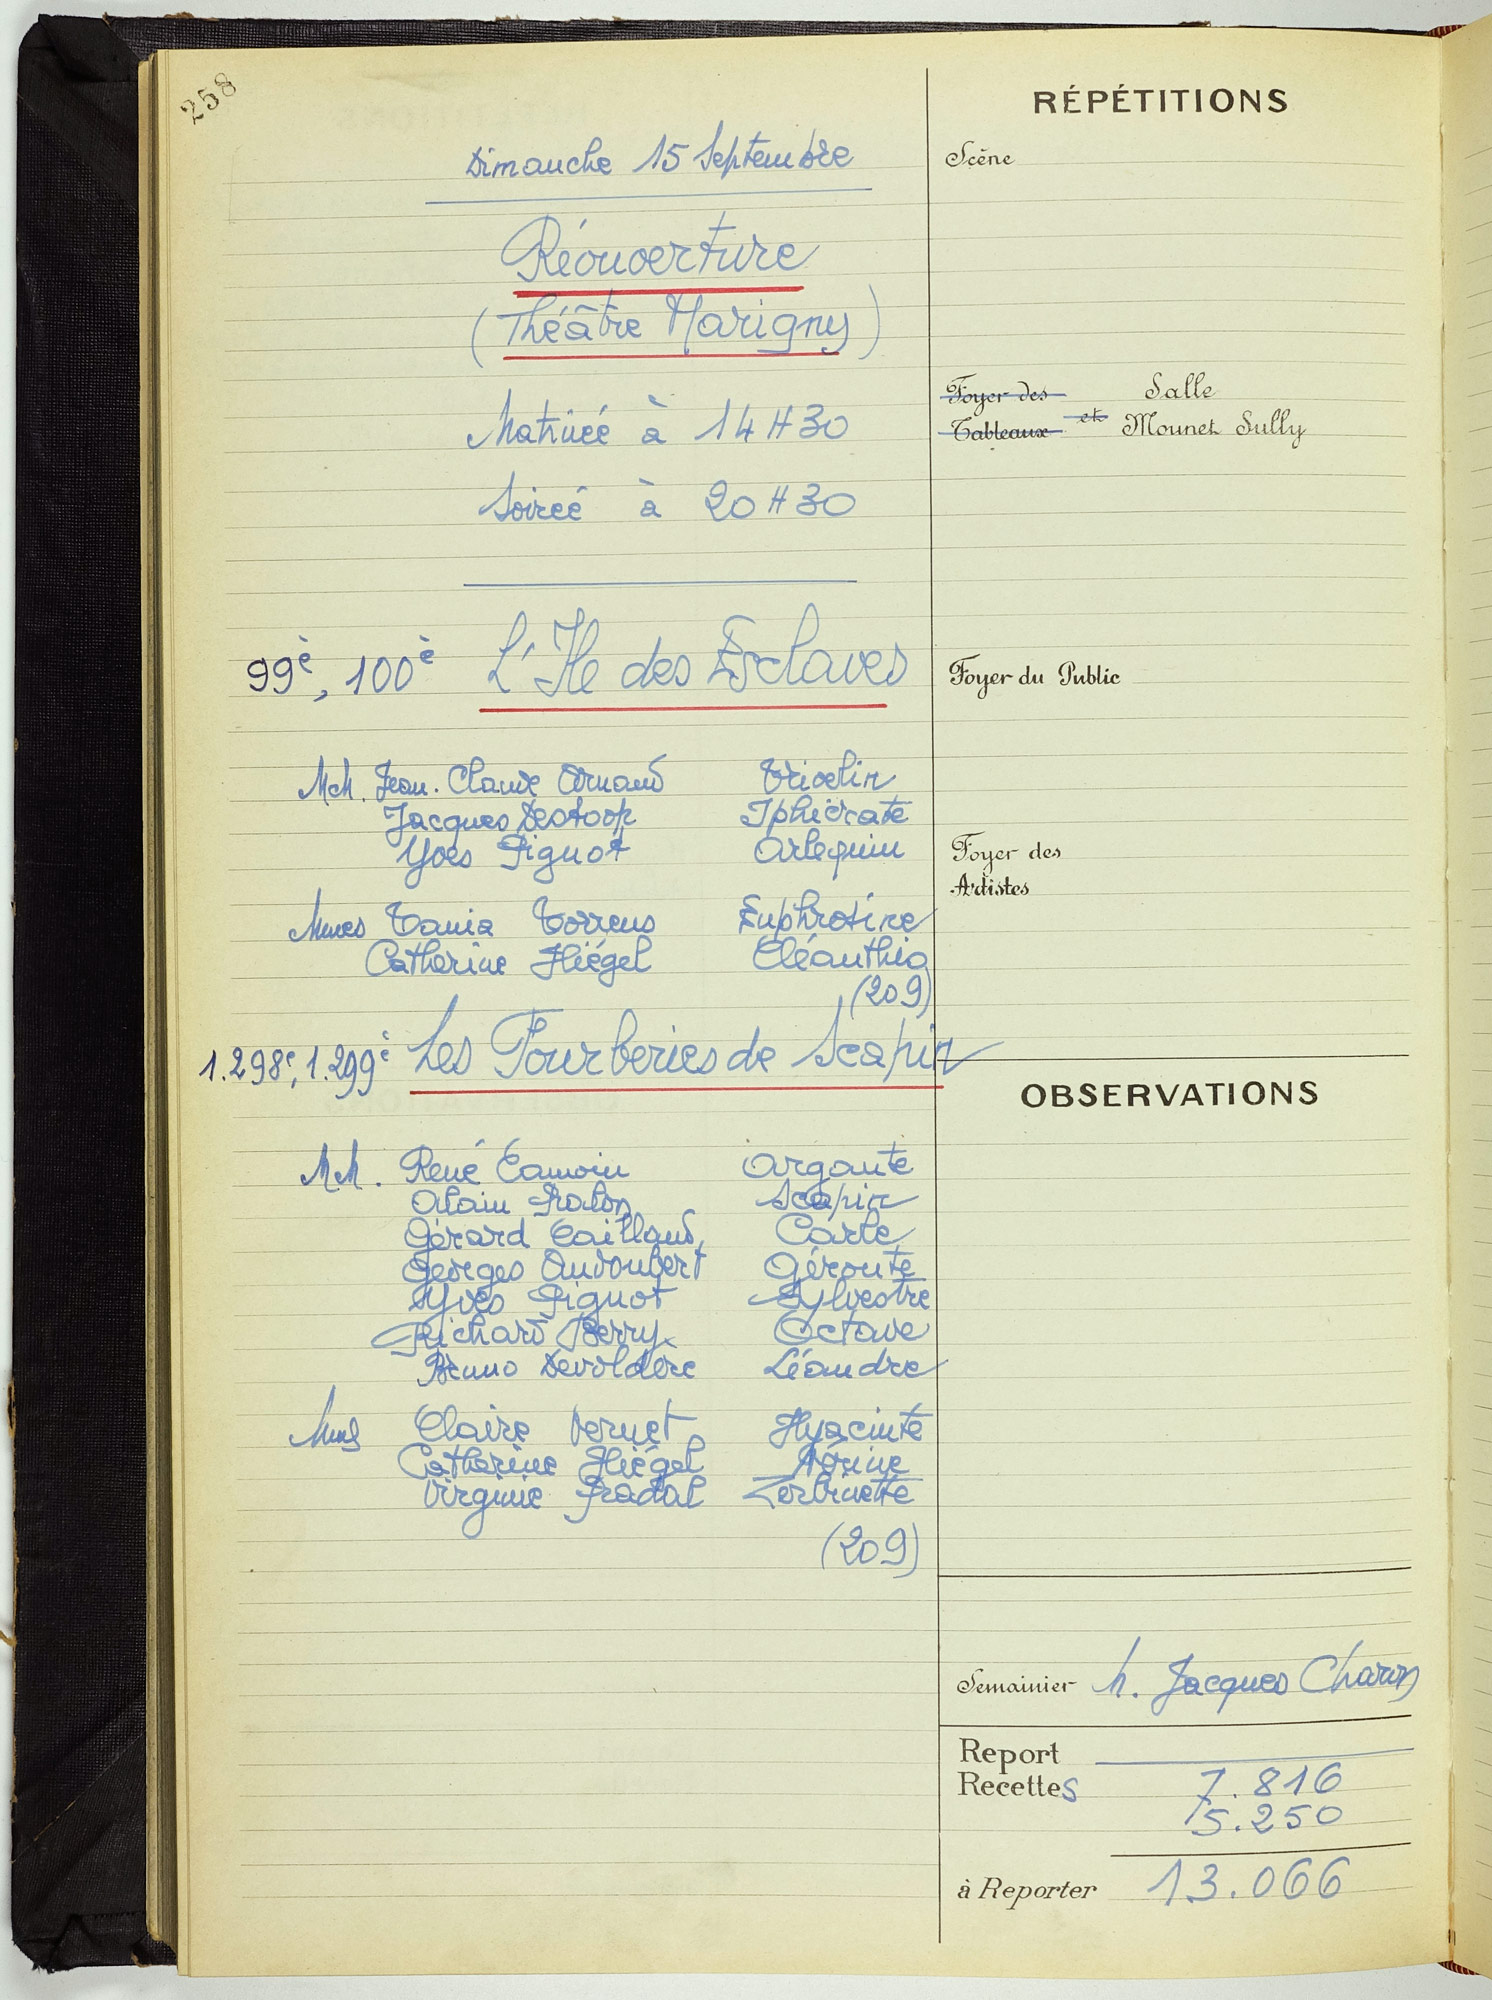 258
Dimanche 15 Septembre
Réouverture
(Théâtre Marigny)
Matinée à 14 H 30
Soirée à 20 H 30
99è, 100è L'Ile des Esclaves
MM. Jean-Claude Arnaud Trivelin
Jacques Destoop Iphicrate
Yves Pignot Arlequin
Mmes Tania Torrens Euphrosine
Catherine Hiégel Cléanthis
(209)
1.298è, 1.299è Les Fourberies de Scapin
MM. René Camoin Argante
Alain Pralon Scapin
Gérard Caillaud Carle
Georges Audoubert Géronte
Yves Pignot Sylvestre
Richard Berry Octave
Bruno Devoldère Léandre
Mmes Claire Vernet Hyacinte
Catherine Hiégel Nérine
Virginie Pradal Zerbinette
(209)
RÉPÉTITIONS
Scène
Foyer des
Tableaux et Salle
Mounet Sully
Foyer du Public
Foyer des
Artistes
OBSERVATIONS
Semainier M. Jacques Charon
Report
Recettes 7.816
5.250
à Reporter 13.066